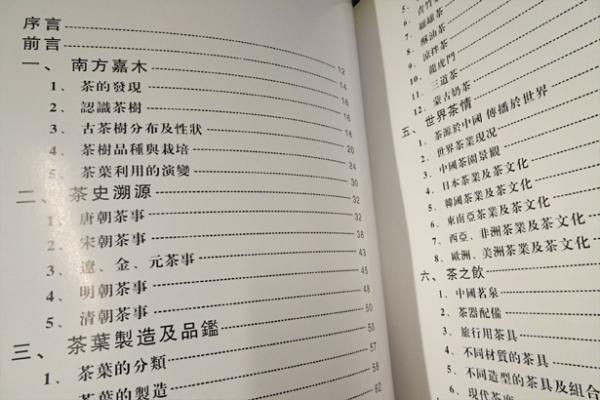 序言
前言
一、南方嘉木 12
1、茶的發現 14
2、認識茶樹 16
3、古茶樹分布及性狀 18
4、茶樹品種與栽培 20
5、茶葉利用的演變 24
二、茶史溯源 30
1、唐朝茶事 32
2、宋朝茶事 32
3、遼、金、元茶事 38
4、明朝茶事 43
5、清朝茶事 45
三、茶葉製造及品鑑 48
1、茶葉的分類 50
茶葉的製造 50
57
62
酥油茶
9、涼拌茶
10、龍虎鬥
11、三道茶
12、蒙古奶茶
五、世界茶情
1、茶源於中國 傳播於世界
2、世界茶業現況
3、中國茶園景觀
4、日本茶業及茶文化
5、韓國茶業及茶文化
6、東南亞茶業及茶文化
7、西亞、非洲茶業及茶文化
8、歐洲、美洲茶業及茶文化
六、茶之飲
1、中國名泉
2、茶器配備
3、旅行用茶具
4、不同材質的茶具
5、不同造型的茶具及組合
6、現代茶席